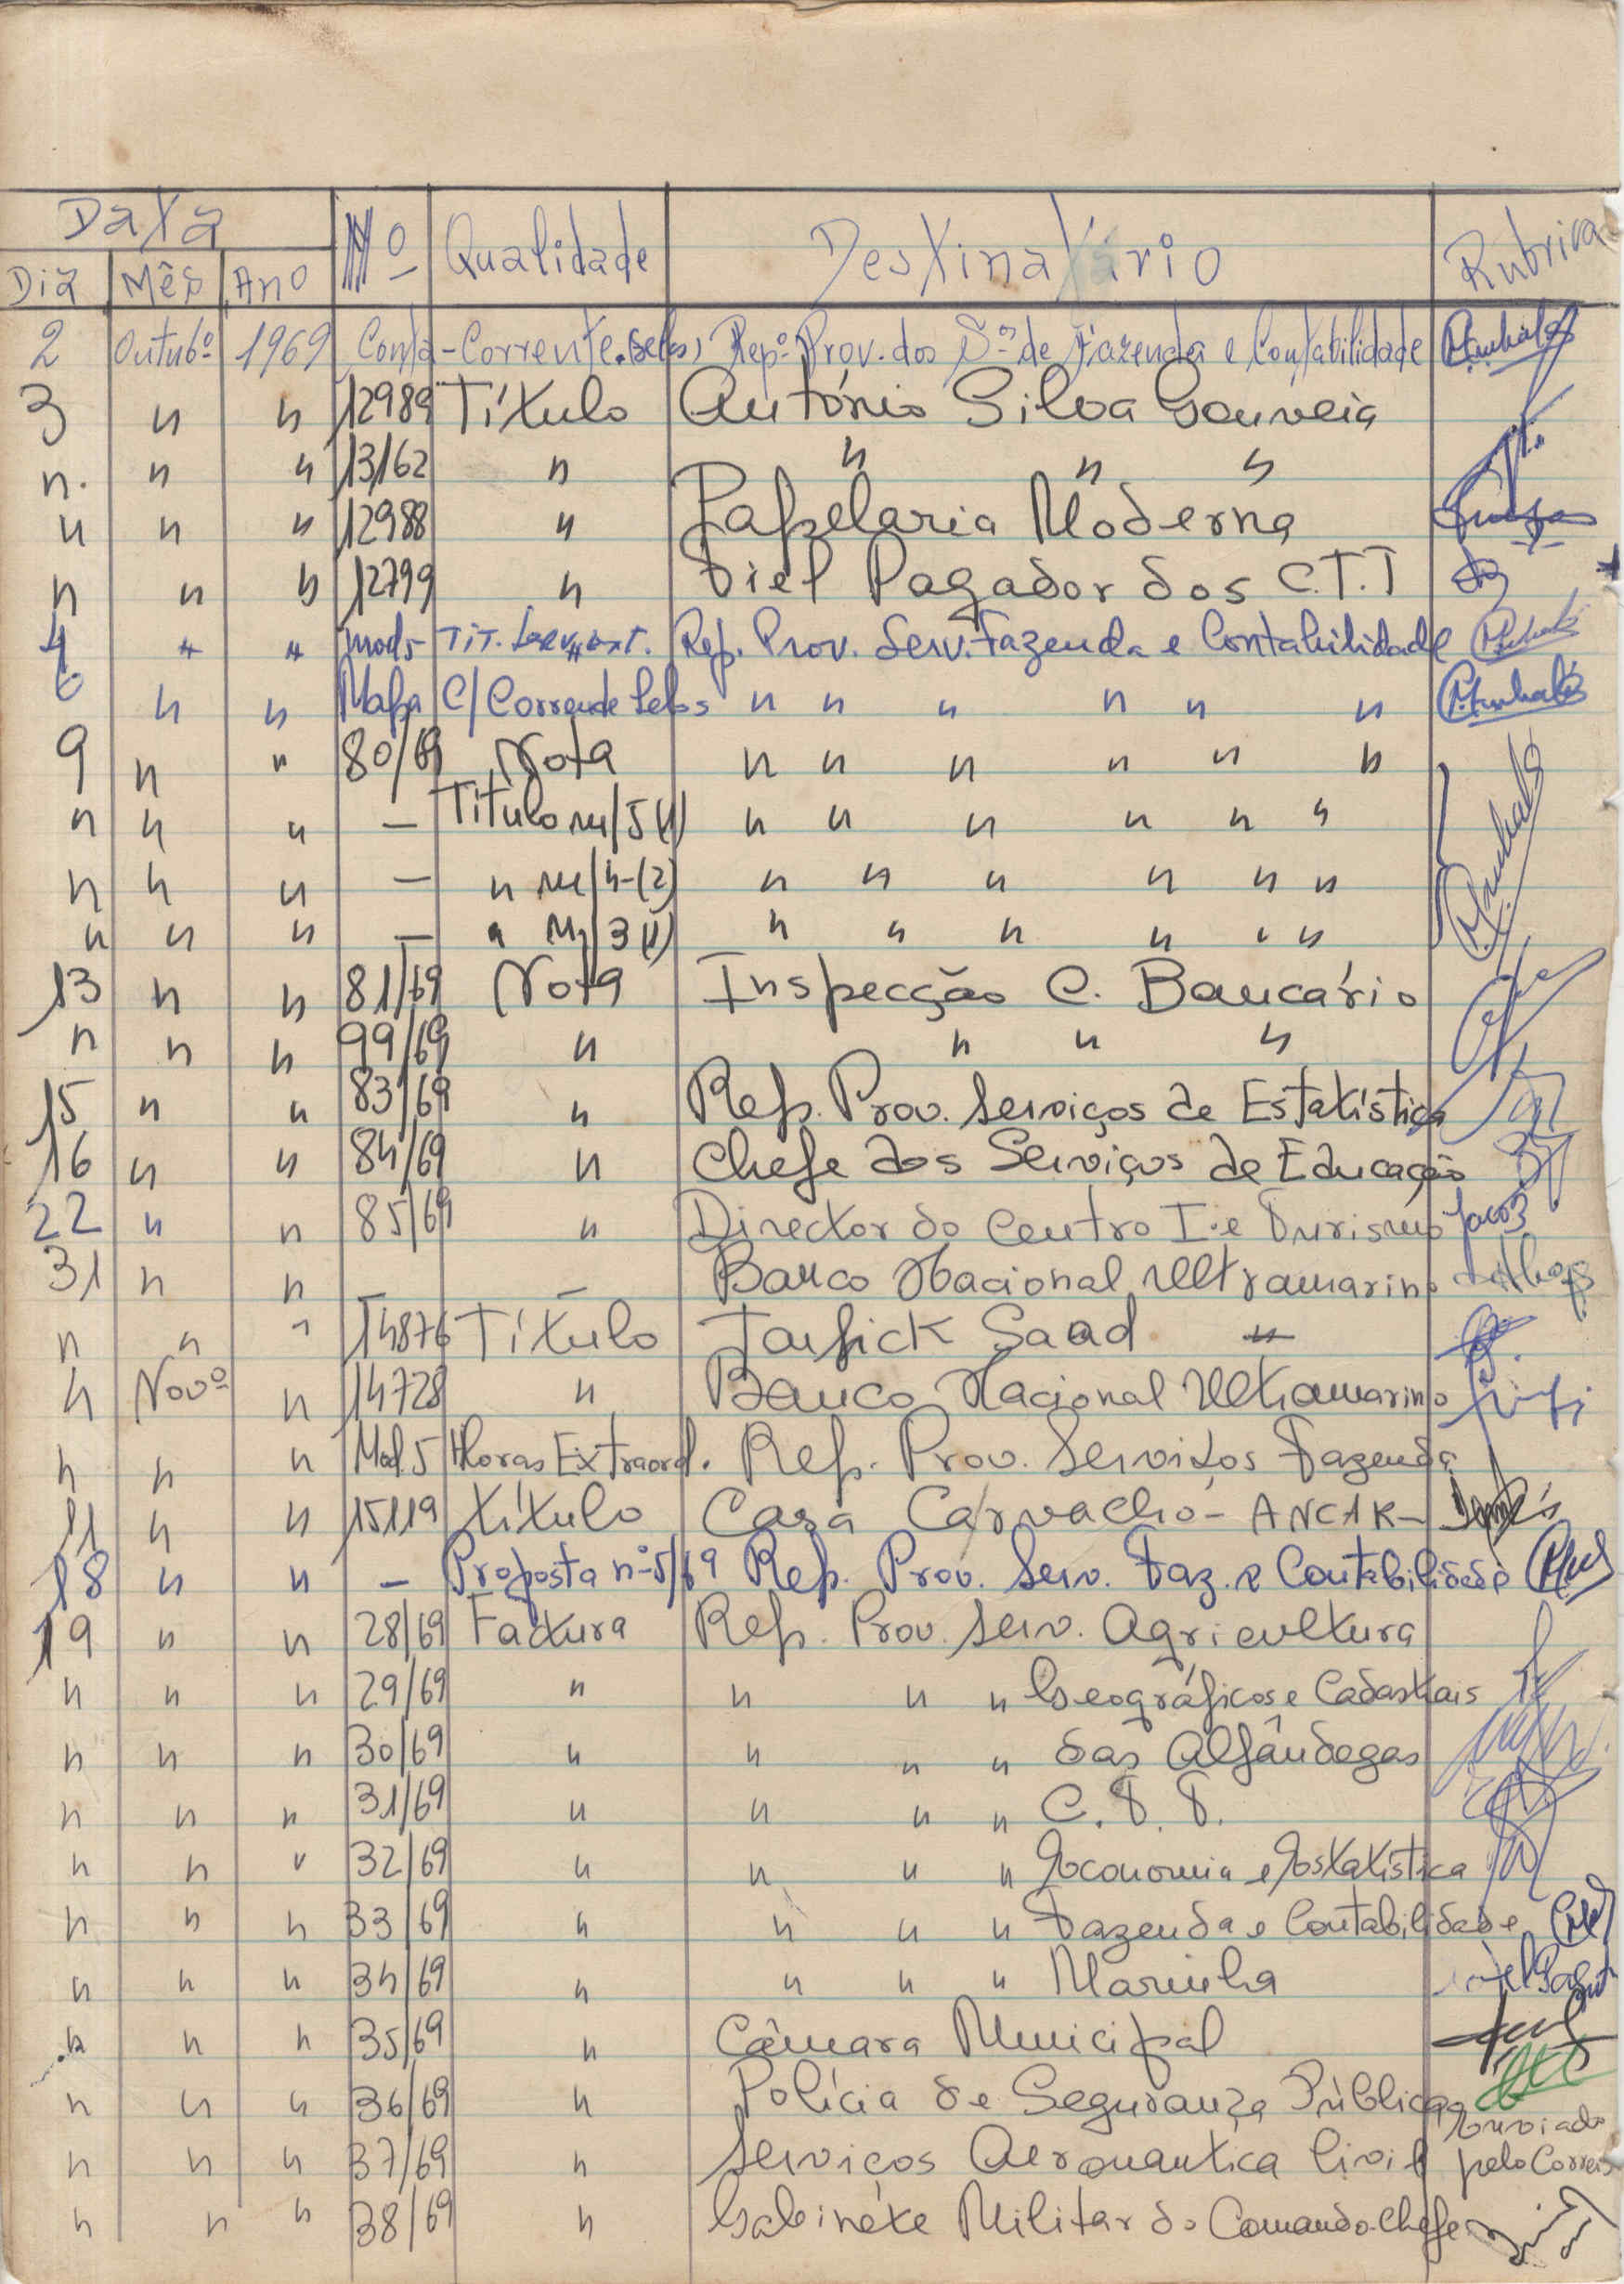 Data Nº Qualidade Destinatário Rubrica
Dia Mês Ano
2 Outubº 1969 Conta-Corrente (Selos) Repº Prov. dos Sºs de Fazenda e Contabilidade
3 " " 12989 Título António Silva Gouveia
" " " 13162 " " " "
" " " 12988 " Papelaria Moderna
" " " 12799 " Fiel Pagador dos C.T.T
4 " " mod 5 Tit. ext. Rep. Prov. Serv. Fazenda e Contabilidade
6 " " Mapa C/Corrente Selos " " " " " "
9 " " 80/69 Nota " " " " " "
" " " — Título m/5 (1) " " " " " "
" " " — " m/4-(2) " " " " " "
" " " — " M/3 (1) " " " " " "
13 " " 81/69 Nota Inspecção C. Bancário
" " " 99/69 " " " "
15 " " 83/69 " Rep. Prov. Serviços de Estatística
16 " " 84/69 " Chefe dos Serviços de Educação
22 " " 85/69 " Director do Centro I. e Turismo
31 " " — — Banco Nacional Ultramarino
" " " 14876 Título Taufick Saad
" Novº " 14728 " Banco Nacional Ultramarino
" " " Mod. 5 Horas Extraord. Rep. Prov. Serviços Fazenda
11 " " 15119 Título Casa Carvacho - ANCAR -
18 " " — Proposta nº 5/69 Rep. Prov. Serv. Faz. e Contabilidade
19 " " 28/69 Factura Rep. Prov. Serv. Agricultura
" " " 29/69 " " " " Geográficos e Cadastrais
" " " 30/69 " " " " das Alfândegas
" " " 31/69 " " " " C.T.T.
" " " 32/69 " " " " Economia e Estatística
" " " 33/69 " " " " Fazenda e Contabilidade
" " " 34/69 " " " " Marinha
" " " 35/69 " Câmara Municipal
" " " 36/69 " Polícia de Segurança Pública
Enviado
" " " 37/69 " Serviços Aeronautica Civil pelo Correio
" " " 38/69 " Gabinete Militar do Comando-Chefe